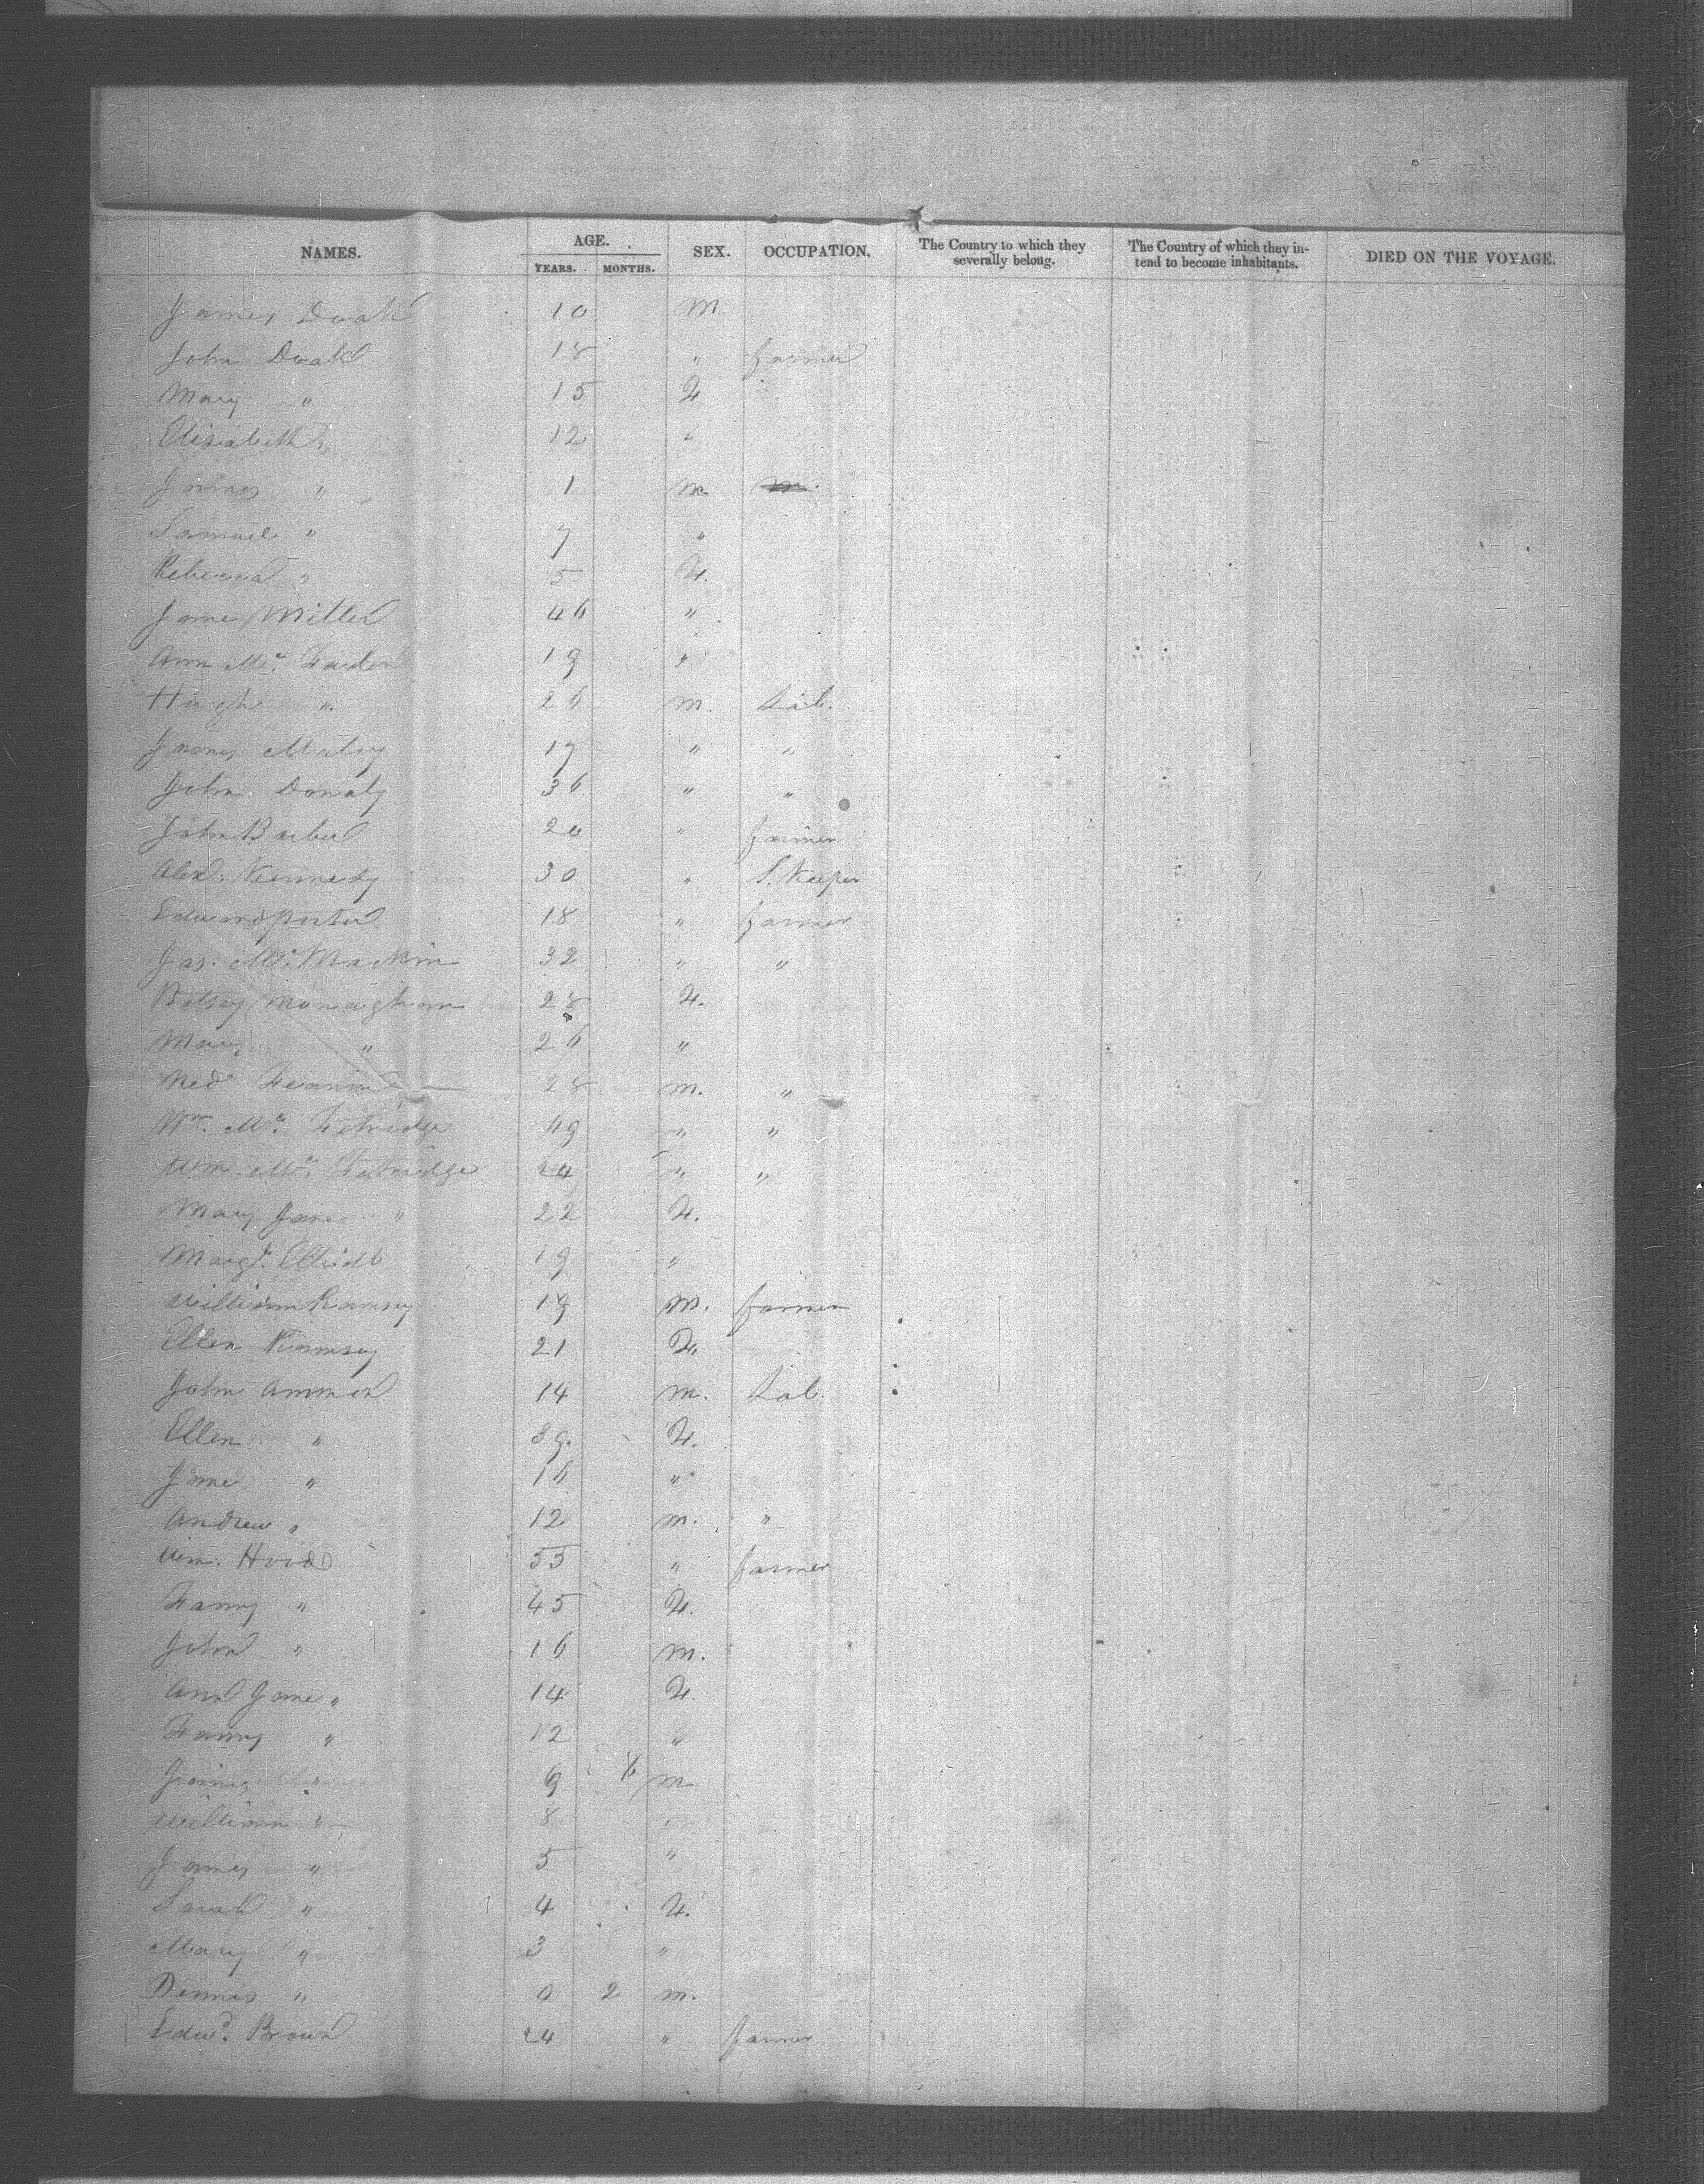 NAMES. AGE. YEARS. MONTHS. SEX. OCCUPATION. The Country to which they severally belong. The Country of which they intend to become inhabitants. DIED ON THE VOYAGE.
James Doak 10 M.
John Doak 18 " farmer
Mary " 15 F
Elizabeth " 12 "
James " 1 m
Samuel " 7 "
Rebecca " 5 F.
Jane Miller 46 "
Ann Mc. Fadden 19 "
Hugh " 26 m. Lab.
James 17 " "
John Donaly 36 " "
John Barber 20 " farmer
Alex. Kennedy 30 " S. Keeper
Edward Porter 18 " farmer
Jas. Mc. Mackin 32 " "
Betsey Monaghan 28 F.
Mary " 26 "
Ned 28 m. "
Wm. Mc. Fetridge 69 " "
Wm. Mc. Fetridge 24 " "
Mary Jane " 22 F.
Margt. 19 "
William Ramsey 19 M. farmer
Ellen Ramsey 21 F.
John Ammon 14 m. Lab.
Ellen " 39. F.
Jane " 16 "
Andrew " 12 m. "
Wm. Hood 55 " farmer
Fanny " 45 F.
John " 16 m.
Ann Jane " 14 F.
Fanny " 12 "
James " 9 6 m
William " 8 "
James " 5 "
Sarah " 4 F.
Mary " 3 "
Dennis " 0 2 m.
Edwd. Brown 24 " farmer